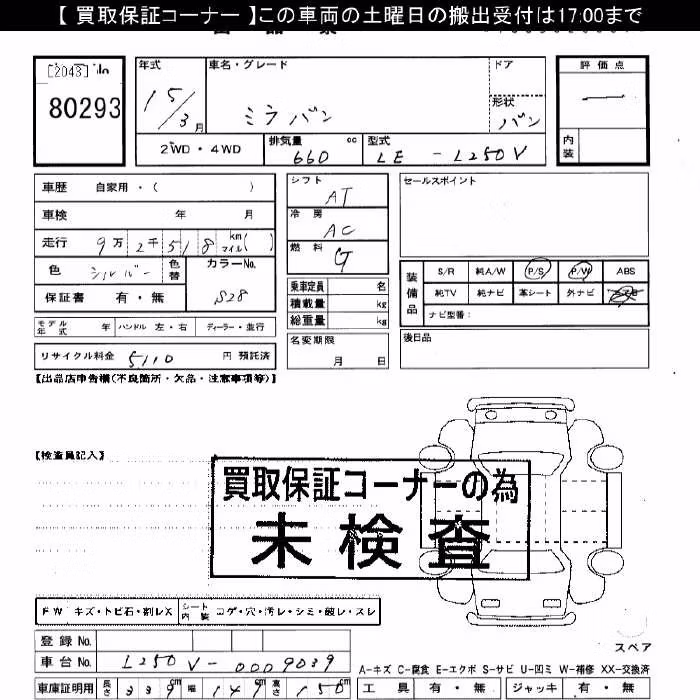 【 買取保証コーナー 】この車両の土曜日の搬出受付は17:00まで
[2043] No
80293
年式
15/3 月
車名・グレード
ミラバン
ドア
形状
バン
評価点
—
内装
2WD・4WD
排気量 cc
660
型式
LE - L250V
車歴 自家用・( )
車検 年 月
走行 9万 2千 518 km マイル( )
色 シルバー 色替
カラーNo.
S28
保証書 有・無
モデル年式 年 ハンドル 左・右 ディーラー・並行
リサイクル料金 5110 円 預託済
シフト
AT
冷房
AC
燃料
G
乗車定員 名
積載量 kg
総重量 kg
名変期限
月 日
セールスポイント
装備品
S/R 純A/W P/S P/W ABS
純TV 純ナビ 革シート 外ナビ
ナビ型番:
後日品
【出品店申告欄(不良箇所・欠品・注意事項等)】
【検査員記入】
買取保証コーナーの為
未検査
FW キズ・トビ石・割レX
シート内装 コゲ・穴・汚レ・シミ・破レ・スレ
スペア
登録 No.
車台 No. L250V-0009039
車庫証明用 長さ 339cm 幅 149cm 高さ 150cm
A-キズ C-腐食 E-エクボ S-サビ U-凹ミ W-補修 XX-交換済
工具 有・無 ジャッキ 有・無